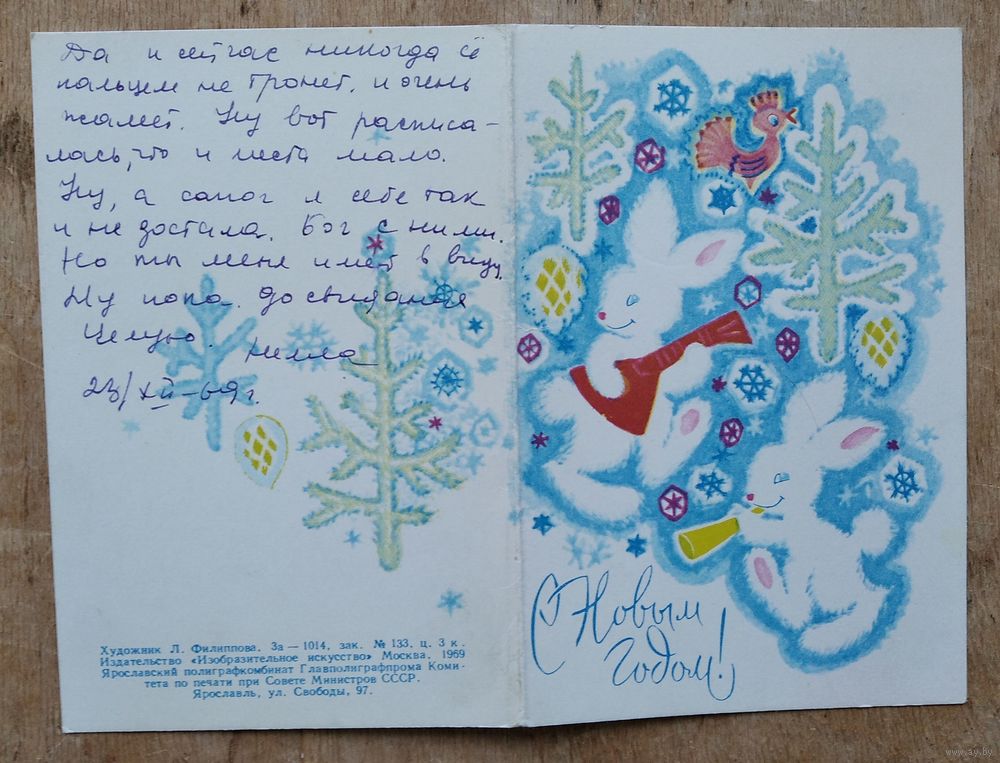 Да и сейчас никогда её
пальцем не тронет. и очень
жалеет. Ну вот расписа-
лась, что и места мало.
Ну, а сапог я себе так
и не достала. Бог с ними.
Но ты меня имей в виду.
Ну пока. до свидания
Целую. Нелла
23/XII-69г.
Художник Л. Филиппова. За — 1014, зак. № 133. ц. 3 к.
Издательство «Изобразительное искусство» Москва. 1969
Ярославский полиграфкомбинат Главполиграфпрома Коми-
тета по печати при Совете Министров СССР.
Ярославль, ул. Свободы, 97.
С Новым
годом!
www.ay.by